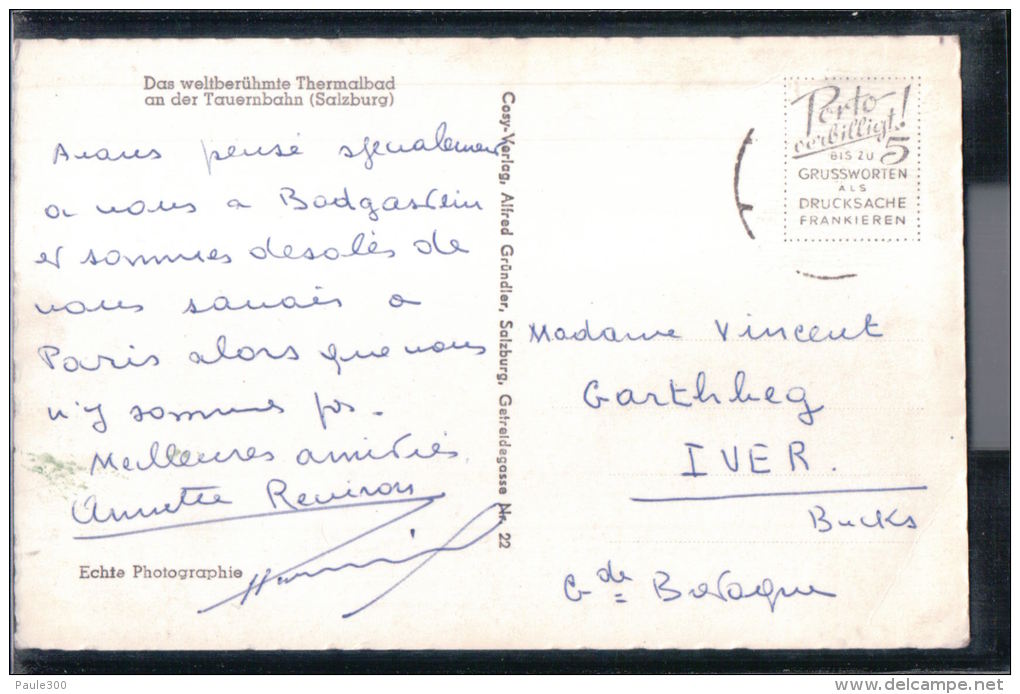 Das weltberühmte Thermalbad
an der Tauernbahn (Salzburg)
Avons pensé également
a vous a Badgastein
et sommes desolés de
vous savoir a
Paris alors que nous
n'y sommes pas.
Meilleures amitiés
Annette
Echte Photographie
Cosy-Verlag, Alfred Gründler, Salzburg, Getreidegasse Nr. 22
Porto
verbilligt!
BIS ZU 5
GRUSSWORTEN
ALS
DRUCKSACHE
FRANKIEREN
Madame Vincent
IVER.
Bucks
Gde Bretagne
Paule300
delcampe.net